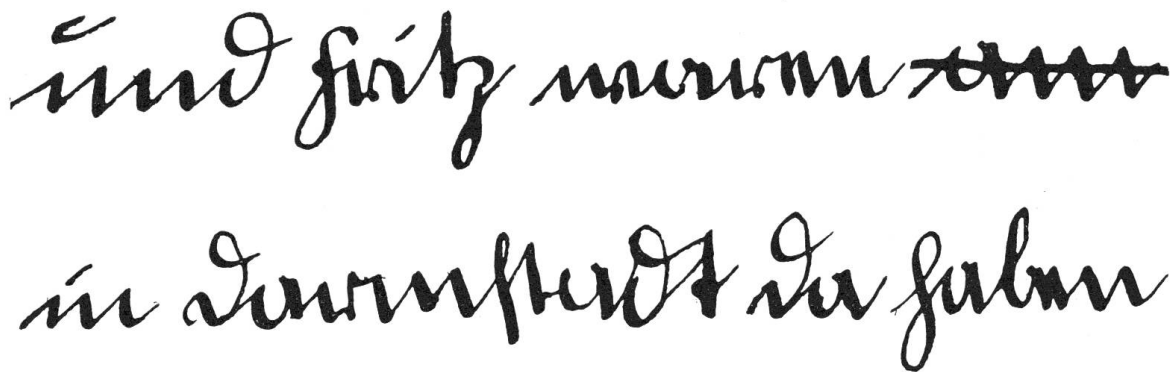 und Fritz waren
in Darmstadt da haben